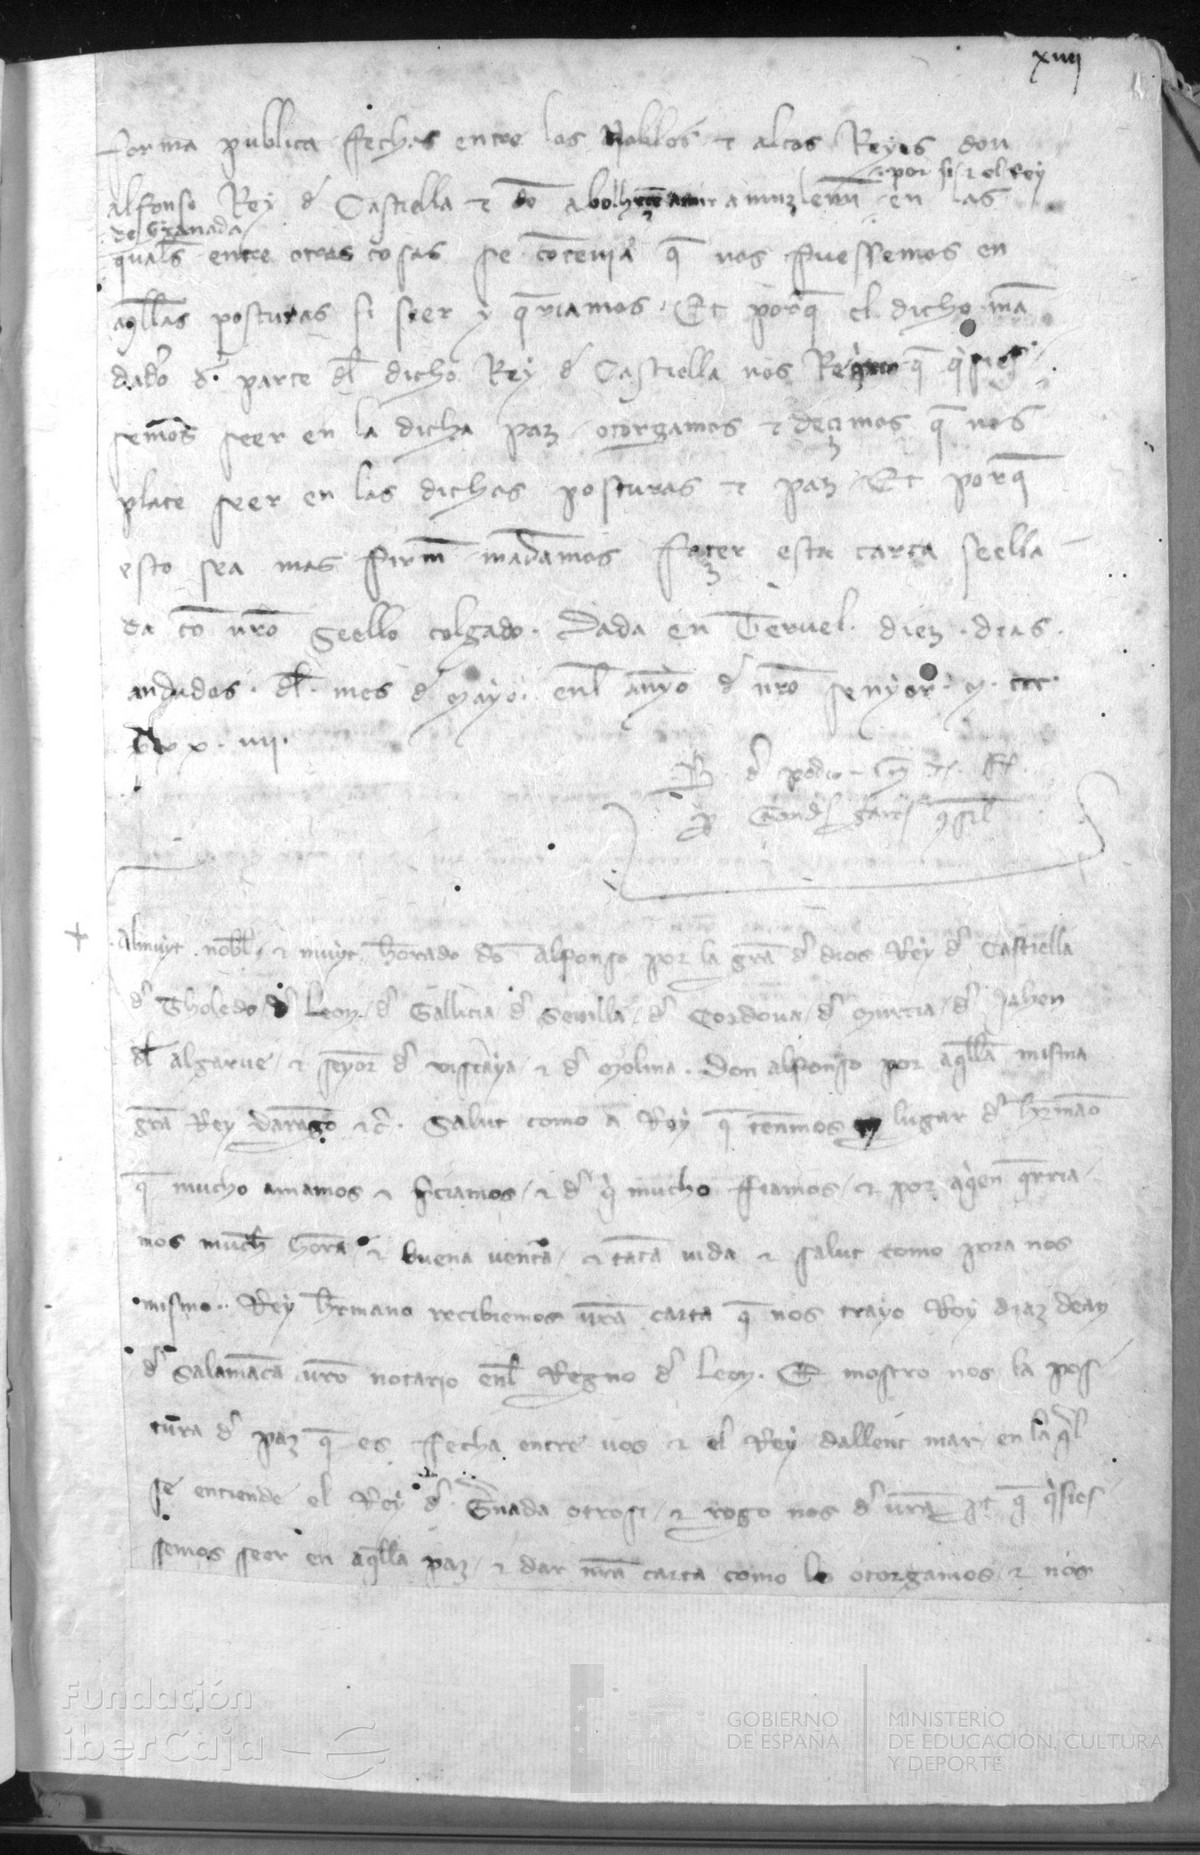 xviij
forma publica ffechas entre los Nobles ⁊ altos Reyes don
por si ⁊ el Rey
alfonso Rey d Castiella ⁊ do amir amuzlemi en las
de Granada
quals entre otras cosas se cotenia q nos fuessemos en
aqllas posturas si seer y qriamos. Et porq el dicho man
dado d parte dl dicho Rey d Castiella nos q qsies
semos seer en la dicha paz otorgamos ⁊ dezimos q nos
place seer en las dichas posturas ⁊ paz. Et porq
esto sea mas firm madamos fazer esta carta seella
da co nro Seello colgado. Dada en Teruel. diez. dias.
andados. dl. mes d mayo. enl anyo d nro senyor. m. ccc.
xx. iiij.
B. d podio
garcs
Almuyt. nobl. ⁊ muyt horado do alfonso por la gra d dios Rey d Castiella
d Tholedo d Leon. d Gallicia d Seuilla d Cordoua d Murcia d Jahen
dl algarue ⁊ senyor d viscaya ⁊ d Molina. Don alfonso por aqlla misma
gra Rey darago ⁊c. Salut como a Rey q tenemos en lugar d hrmano
q mucho amamos ⁊ ⁊ d q mucho ffiamos ⁊ por aqen qrria
mos much hora ⁊ buena ventura ⁊ tata vida ⁊ salut como pora nos
mismo. Rey hermano recibiemos vra carta q nos trayo Roy diaz dean
d Salamaca vro notario enl Regno d Leon. Et mostro nos la pos
tura d paz q es ffecha entre vos ⁊ el Rey dallent mar en la ql
se entiende el Rey d Gnada otrosi ⁊ rogo nos d vra pt q qsies
semos seer en aqlla paz ⁊ dar nra carta como lo otorgamos ⁊ nos
Fundación
iberCaja
GOBIERNO
DE ESPAÑA
MINISTERIO
DE EDUCACIÓN, CULTURA
Y DEPORTE